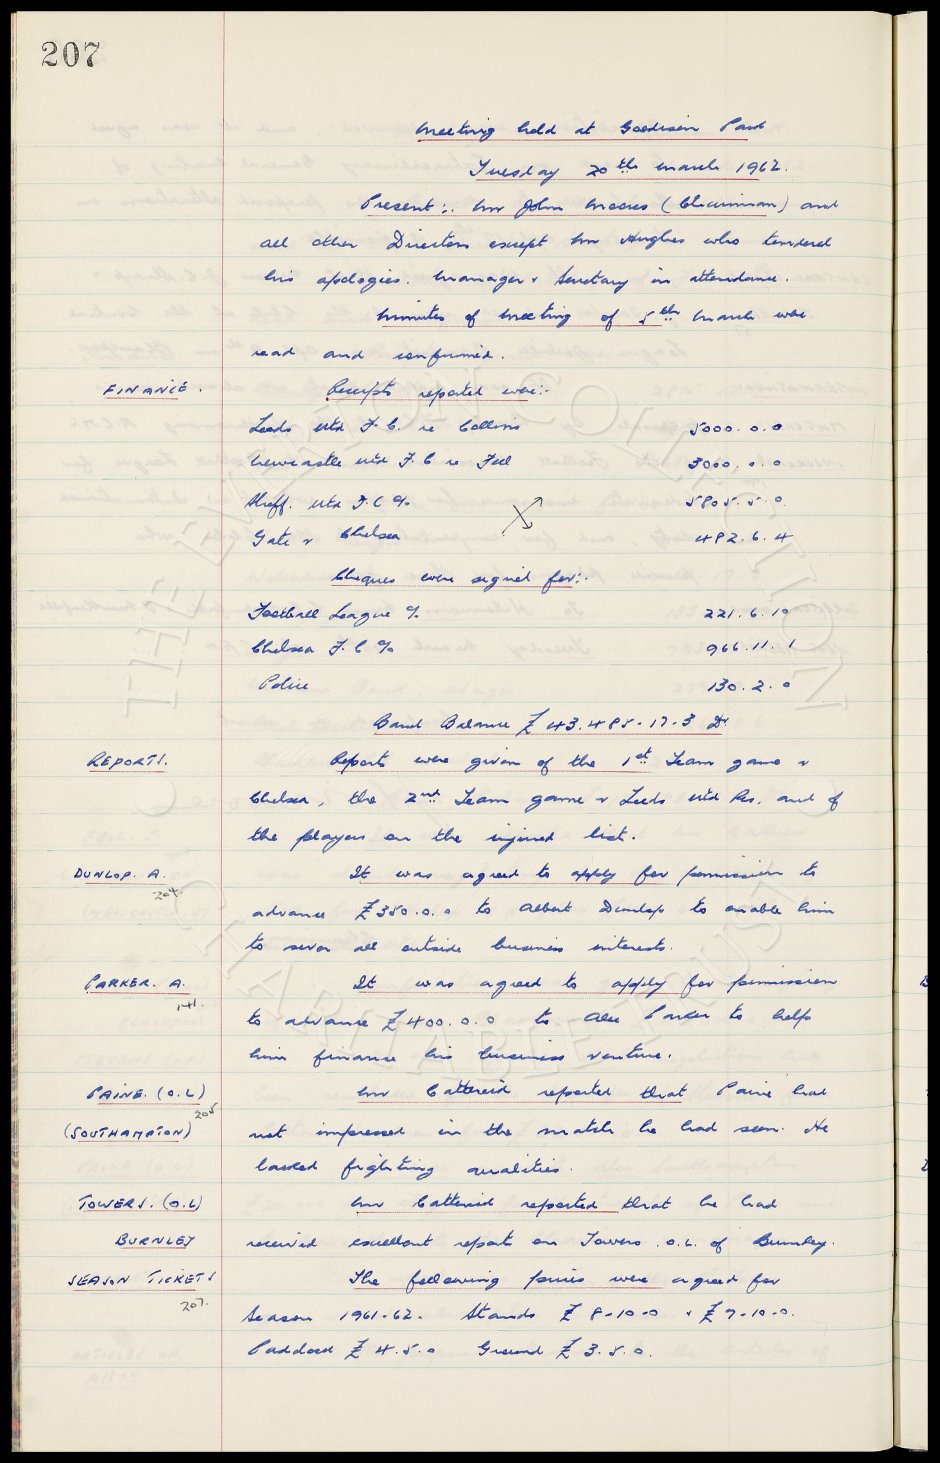 207
Meeting held at Goodison Park
Tuesday 20th March 1962.
Present:. Mr John Moores (Chairman) and
all other Directors except Mr Hughes who tendered
his apologies. Manager & Secretary in attendance.
Minutes of Meeting of 5th March were
read and confirmed.
FINANCE. Receipts reported were:-
Leeds Utd F.C. re Collins 5000.0.0
Newcastle Utd F.C re Fell 3000.0.0
Sheff. Utd F.C % 5805.5.0
Gate v Chelsea 482.6.4
Cheques were signed for:.
Football League % 221.6.10
Chelsea F.C % 966.11.1
Police 130.2.0
Bank Balance £43.485-17-3 Dr
REPORTS. Reports were given of the 1st Team game v
Chelsea, the 2nd Team game v Leeds Utd Res. and of
the players on the injured list.
DUNLOP. A. It was agreed to apply for permission to
204.
advance £350.0.0 to Albert Dunlop to enable him
to sever all outside business interests.
PARKER. A. It was agreed to apply for permission
141.
to advance £400.0.0 to Alex Parker to help
him finance his business venture.
PAINE. (O.L) Mr Catterick reported that Paine had
205
(SOUTHAMPTON) not impressed in the match he had seen. He
lacked fighting qualities.
TOWERS. (O.L) Mr Catterick reported that he had
BURNLEY received excellent report on Towers. O.L. of Burnley.
SEASON TICKETS The following prices were agreed for
207.
Season 1961-62. Stands £8-10-0 & £7-10-0.
Paddock £4.5.0 Ground £3.5.0.
THE EVERTON COLLECTION
CHARITABLE TRUST